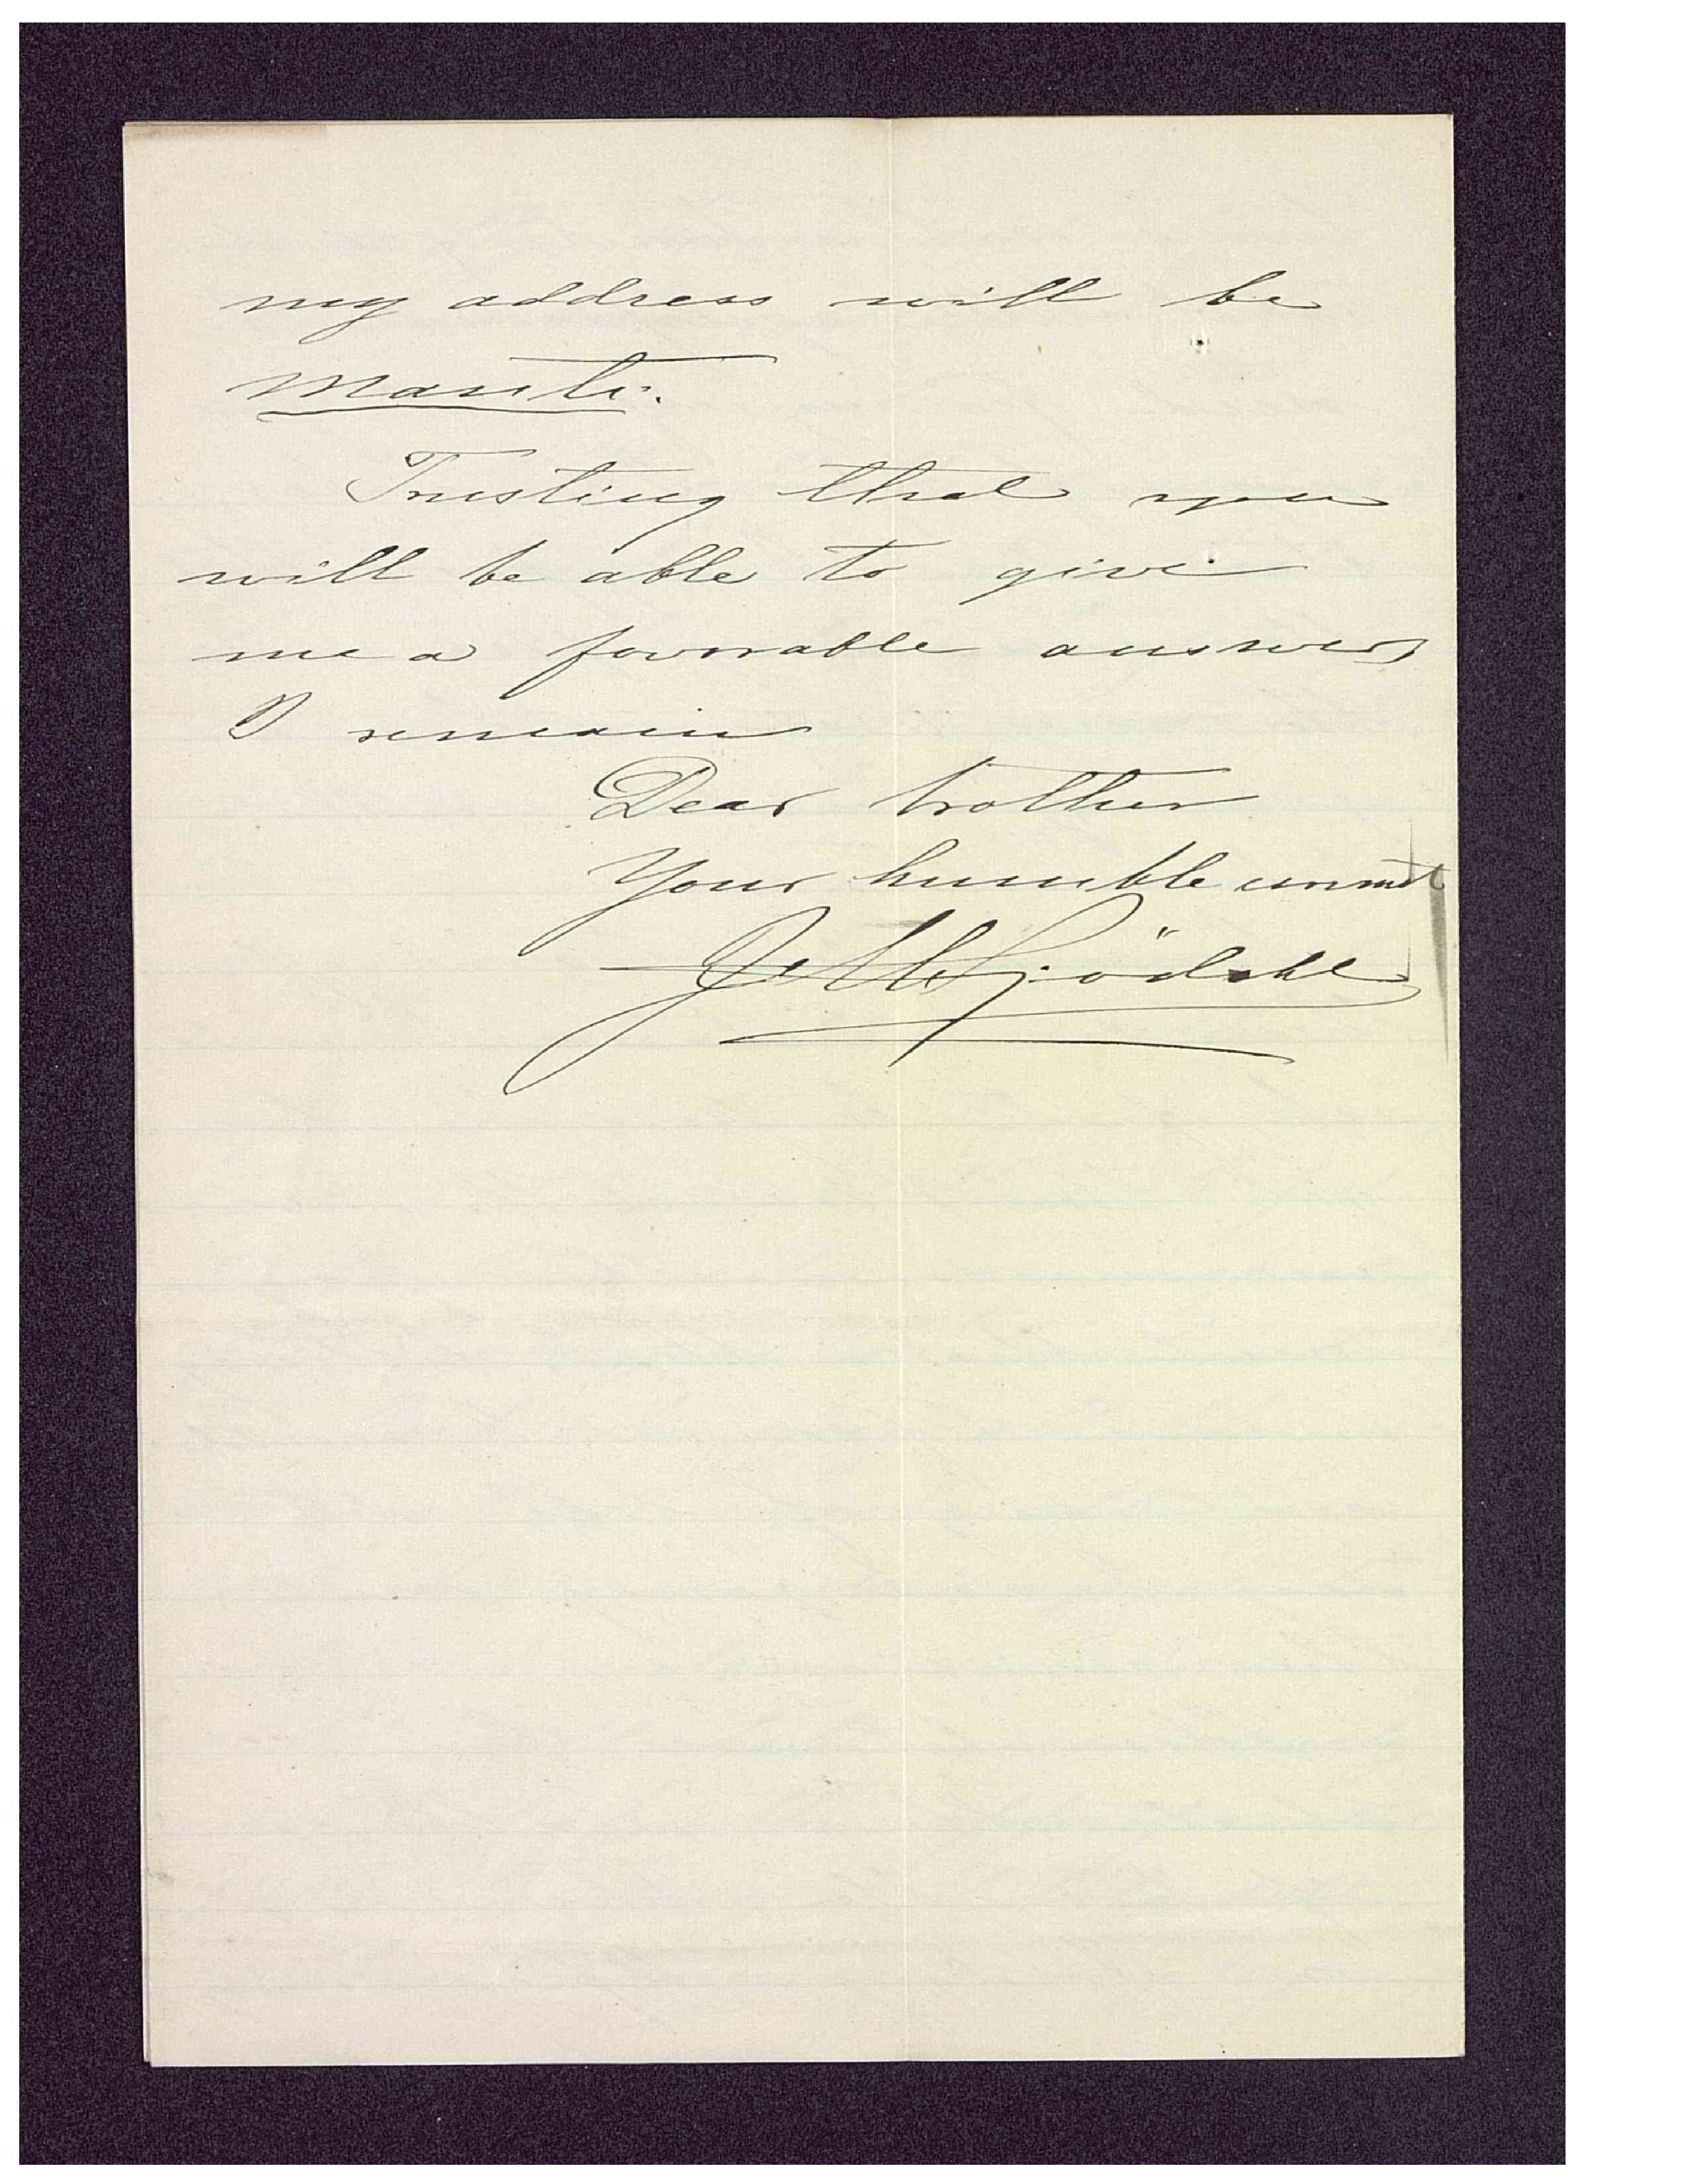 my address will be
Manti.
Trusting that you
will be able to give
me a favorable answer,
I remain
Dear brother
Your humble servant
J. M. Sjödahl